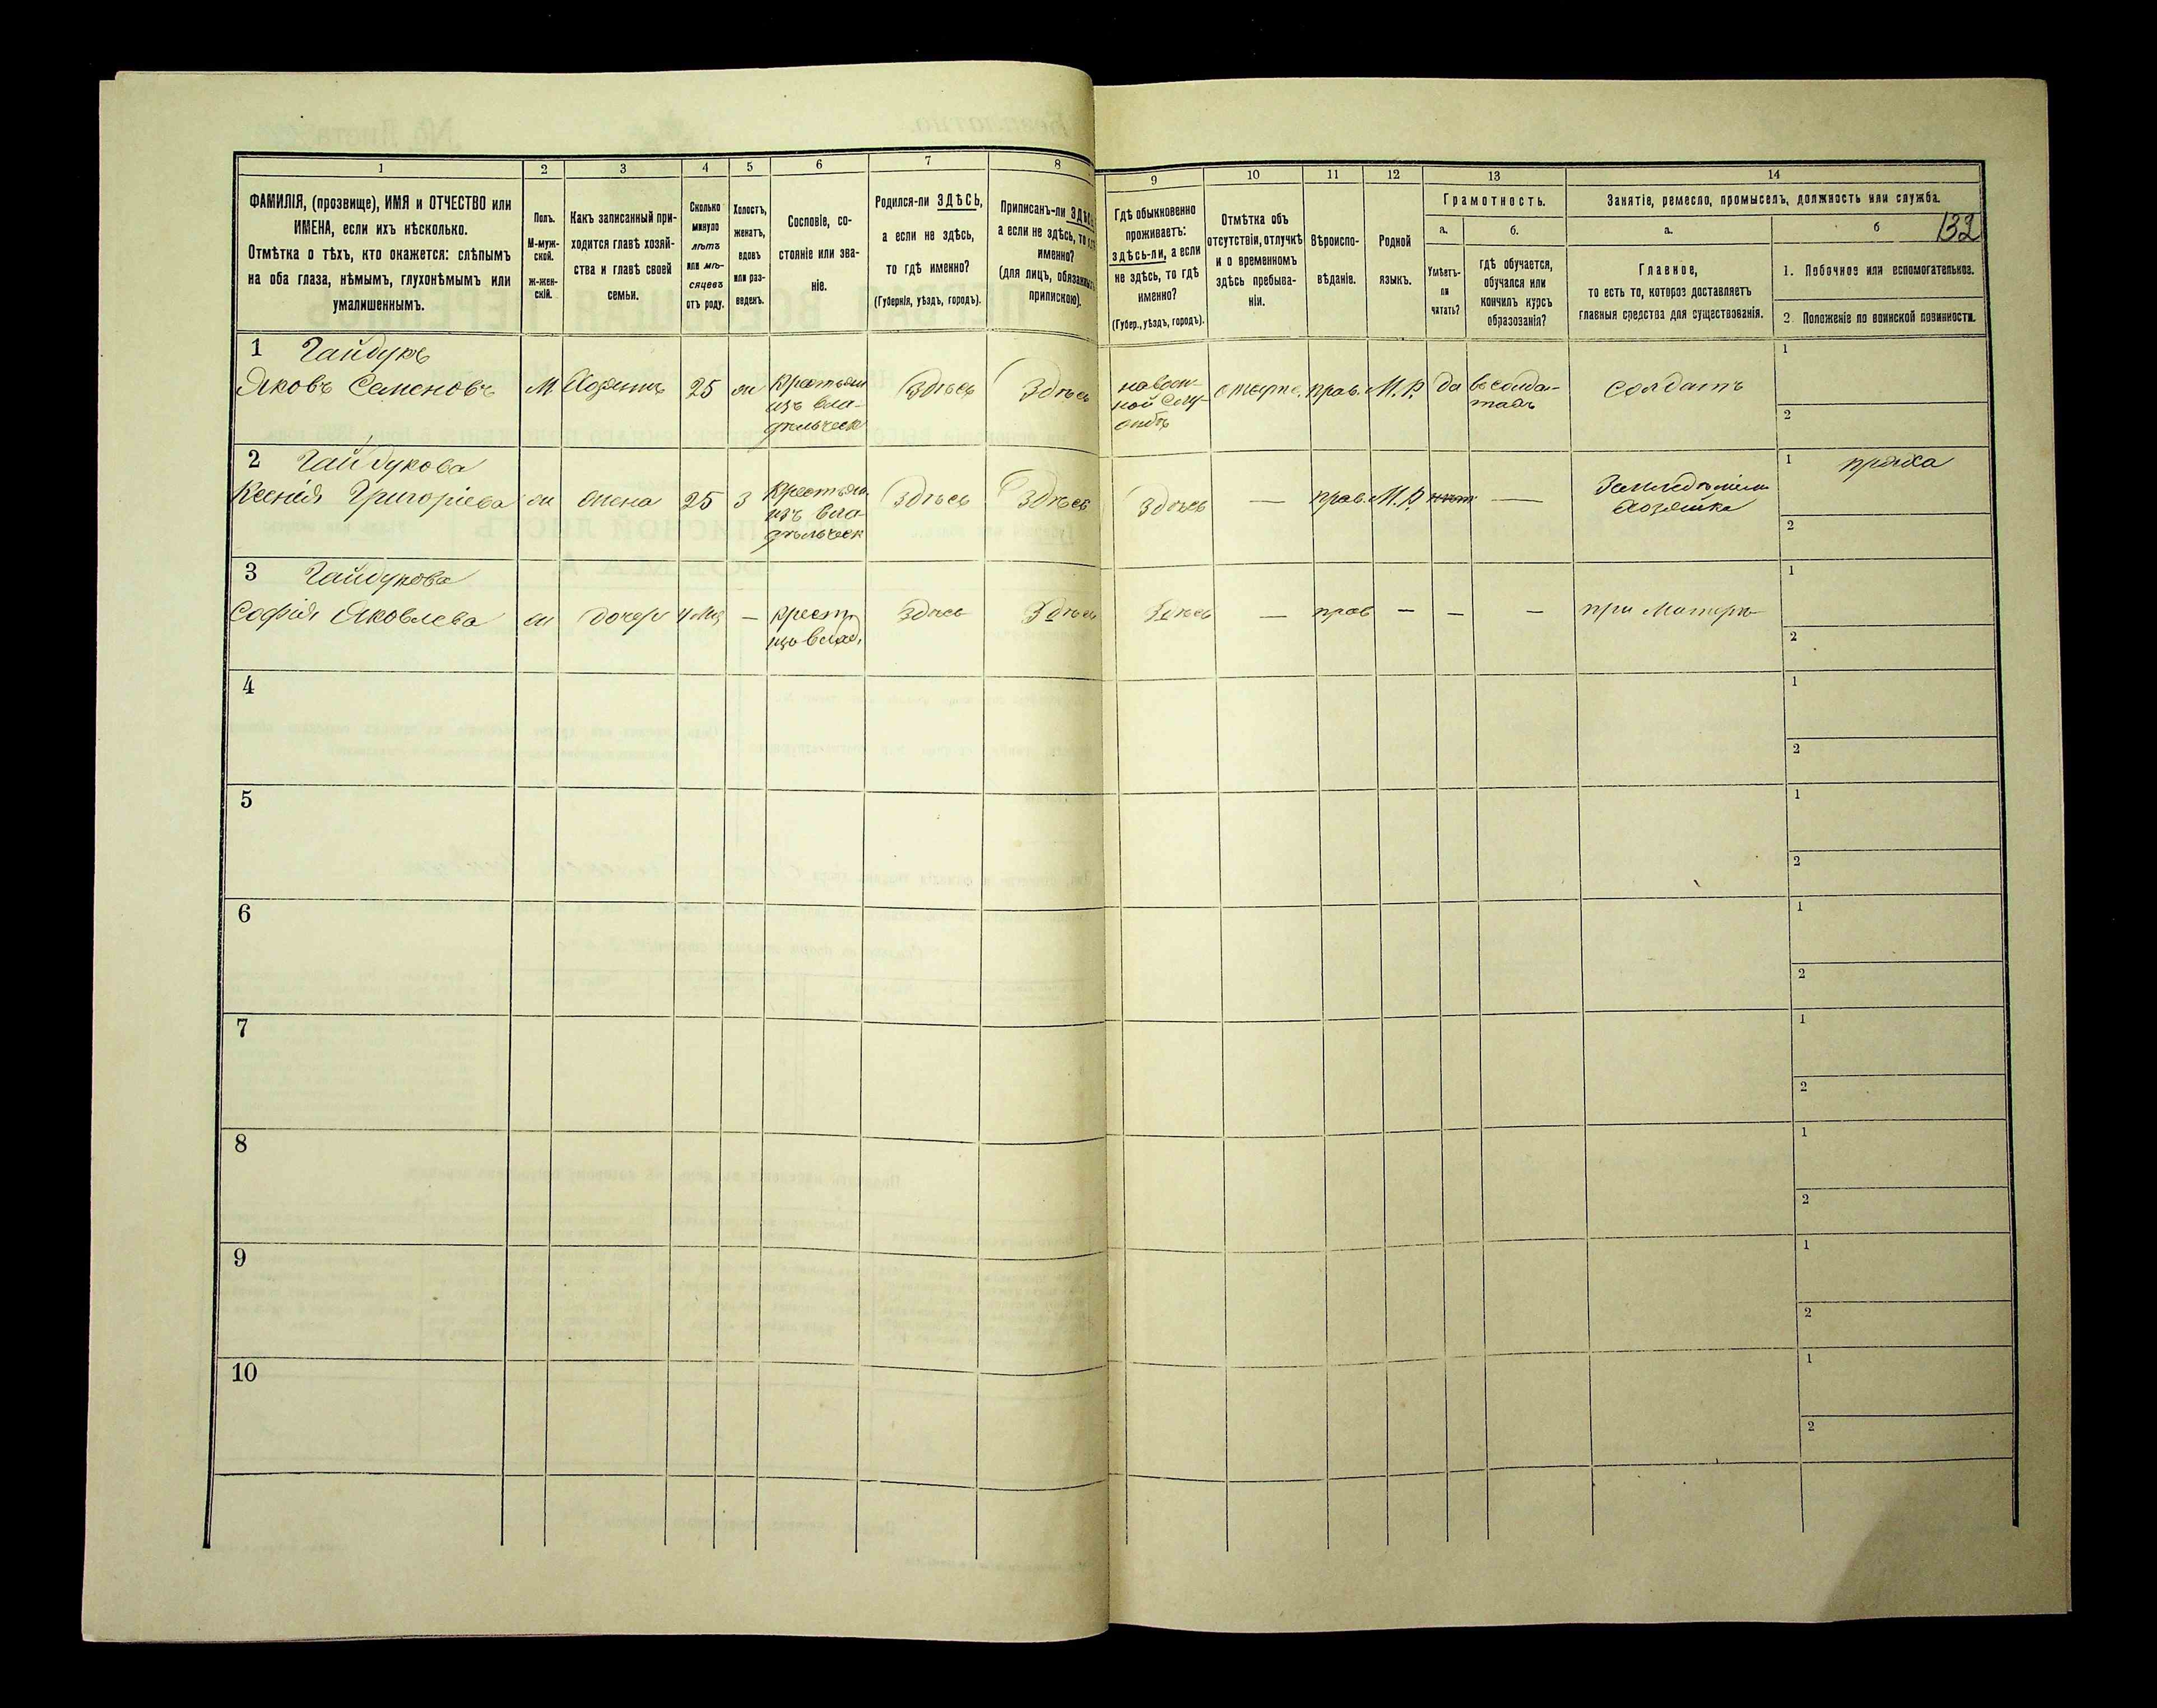 1 2 3 4 5 6 7 8
ФАМИЛІЯ, (прозвище), ИМЯ и ОТЧЕСТВО или
ИМЕНА, если ихъ нѣсколько.
Отмѣтка о тѣхъ, кто окажется: слѣпымъ
на оба глаза, нѣмымъ, глухонѣмымъ или
умалишеннымъ.
Полъ.
М-муж-
ской.
Ж-жен-
скій.
Какъ записанный при-
ходится главѣ хозяй-
ства и главѣ своей
семьи.
Сколько
минуло
лѣтъ
или мѣ-
сяцевъ
отъ роду.
Холостъ,
женатъ,
вдовъ
или раз-
веденъ.
Сословіе, со-
стояніе или зва-
ніе.
Родился-ли ЗДѢСЬ,
а если не здѣсь,
то гдѣ именно?
(Губернія, уѣздъ, городъ).
Приписанъ-ли
а если не здѣсь, то
именно?
(для лицъ,
припискою).
9 10 11 12 13 14
Гдѣ обыкновенно
проживаетъ:
здѣсь-ли, а если
не здѣсь, то гдѣ
именно?
(Губер., уѣздъ, городъ).
Отмѣтка объ
отсутствіи, отлучкѣ
и о временномъ
здѣсь пребыва-
ніи.
Вѣроиспо-
вѣданіе.
Родной
языкъ.
Грамотность.
а. б.
Умѣетъ-
ли
читать?
гдѣ обучается,
обучался или
кончилъ курсъ
образованія?
Занятіе, ремесло, промыселъ, должность или служба.
а. б 132
Главное,
то есть то, которое доставляетъ
главныя средства для существованія.
1. Побочное или вспомогательное.
2. Положеніе по воинской повинности.
1 Гайдукъ
Яковъ Семеновъ М Хозяинъ 25 ж Крестьян Здѣсь Здѣсь
изъ вла-
дѣльческ
на воен-
ной Слу-
жбѣ
прав. М.Р. да в солда-
тахъ
солдатъ
1
2
2 Гайдукова
Ксенія Григоріева ж жена 25 З Крестьян Здѣсь Здѣсь
изъ вла
дѣльческ
Здѣсь — прав. М.Р. нѣт —
Хозяйка
1 пряха
2
3 Гайдукова
Софія Яковлева ж дочерь 4 мц — крест. Здѣсь Здѣсь
изъ влад.
Здѣсь — прав — — — при Матери
1
2
4 1
2
5 1
2
6 1
2
7 1
2
8 1
2
9 1
2
10 1
2